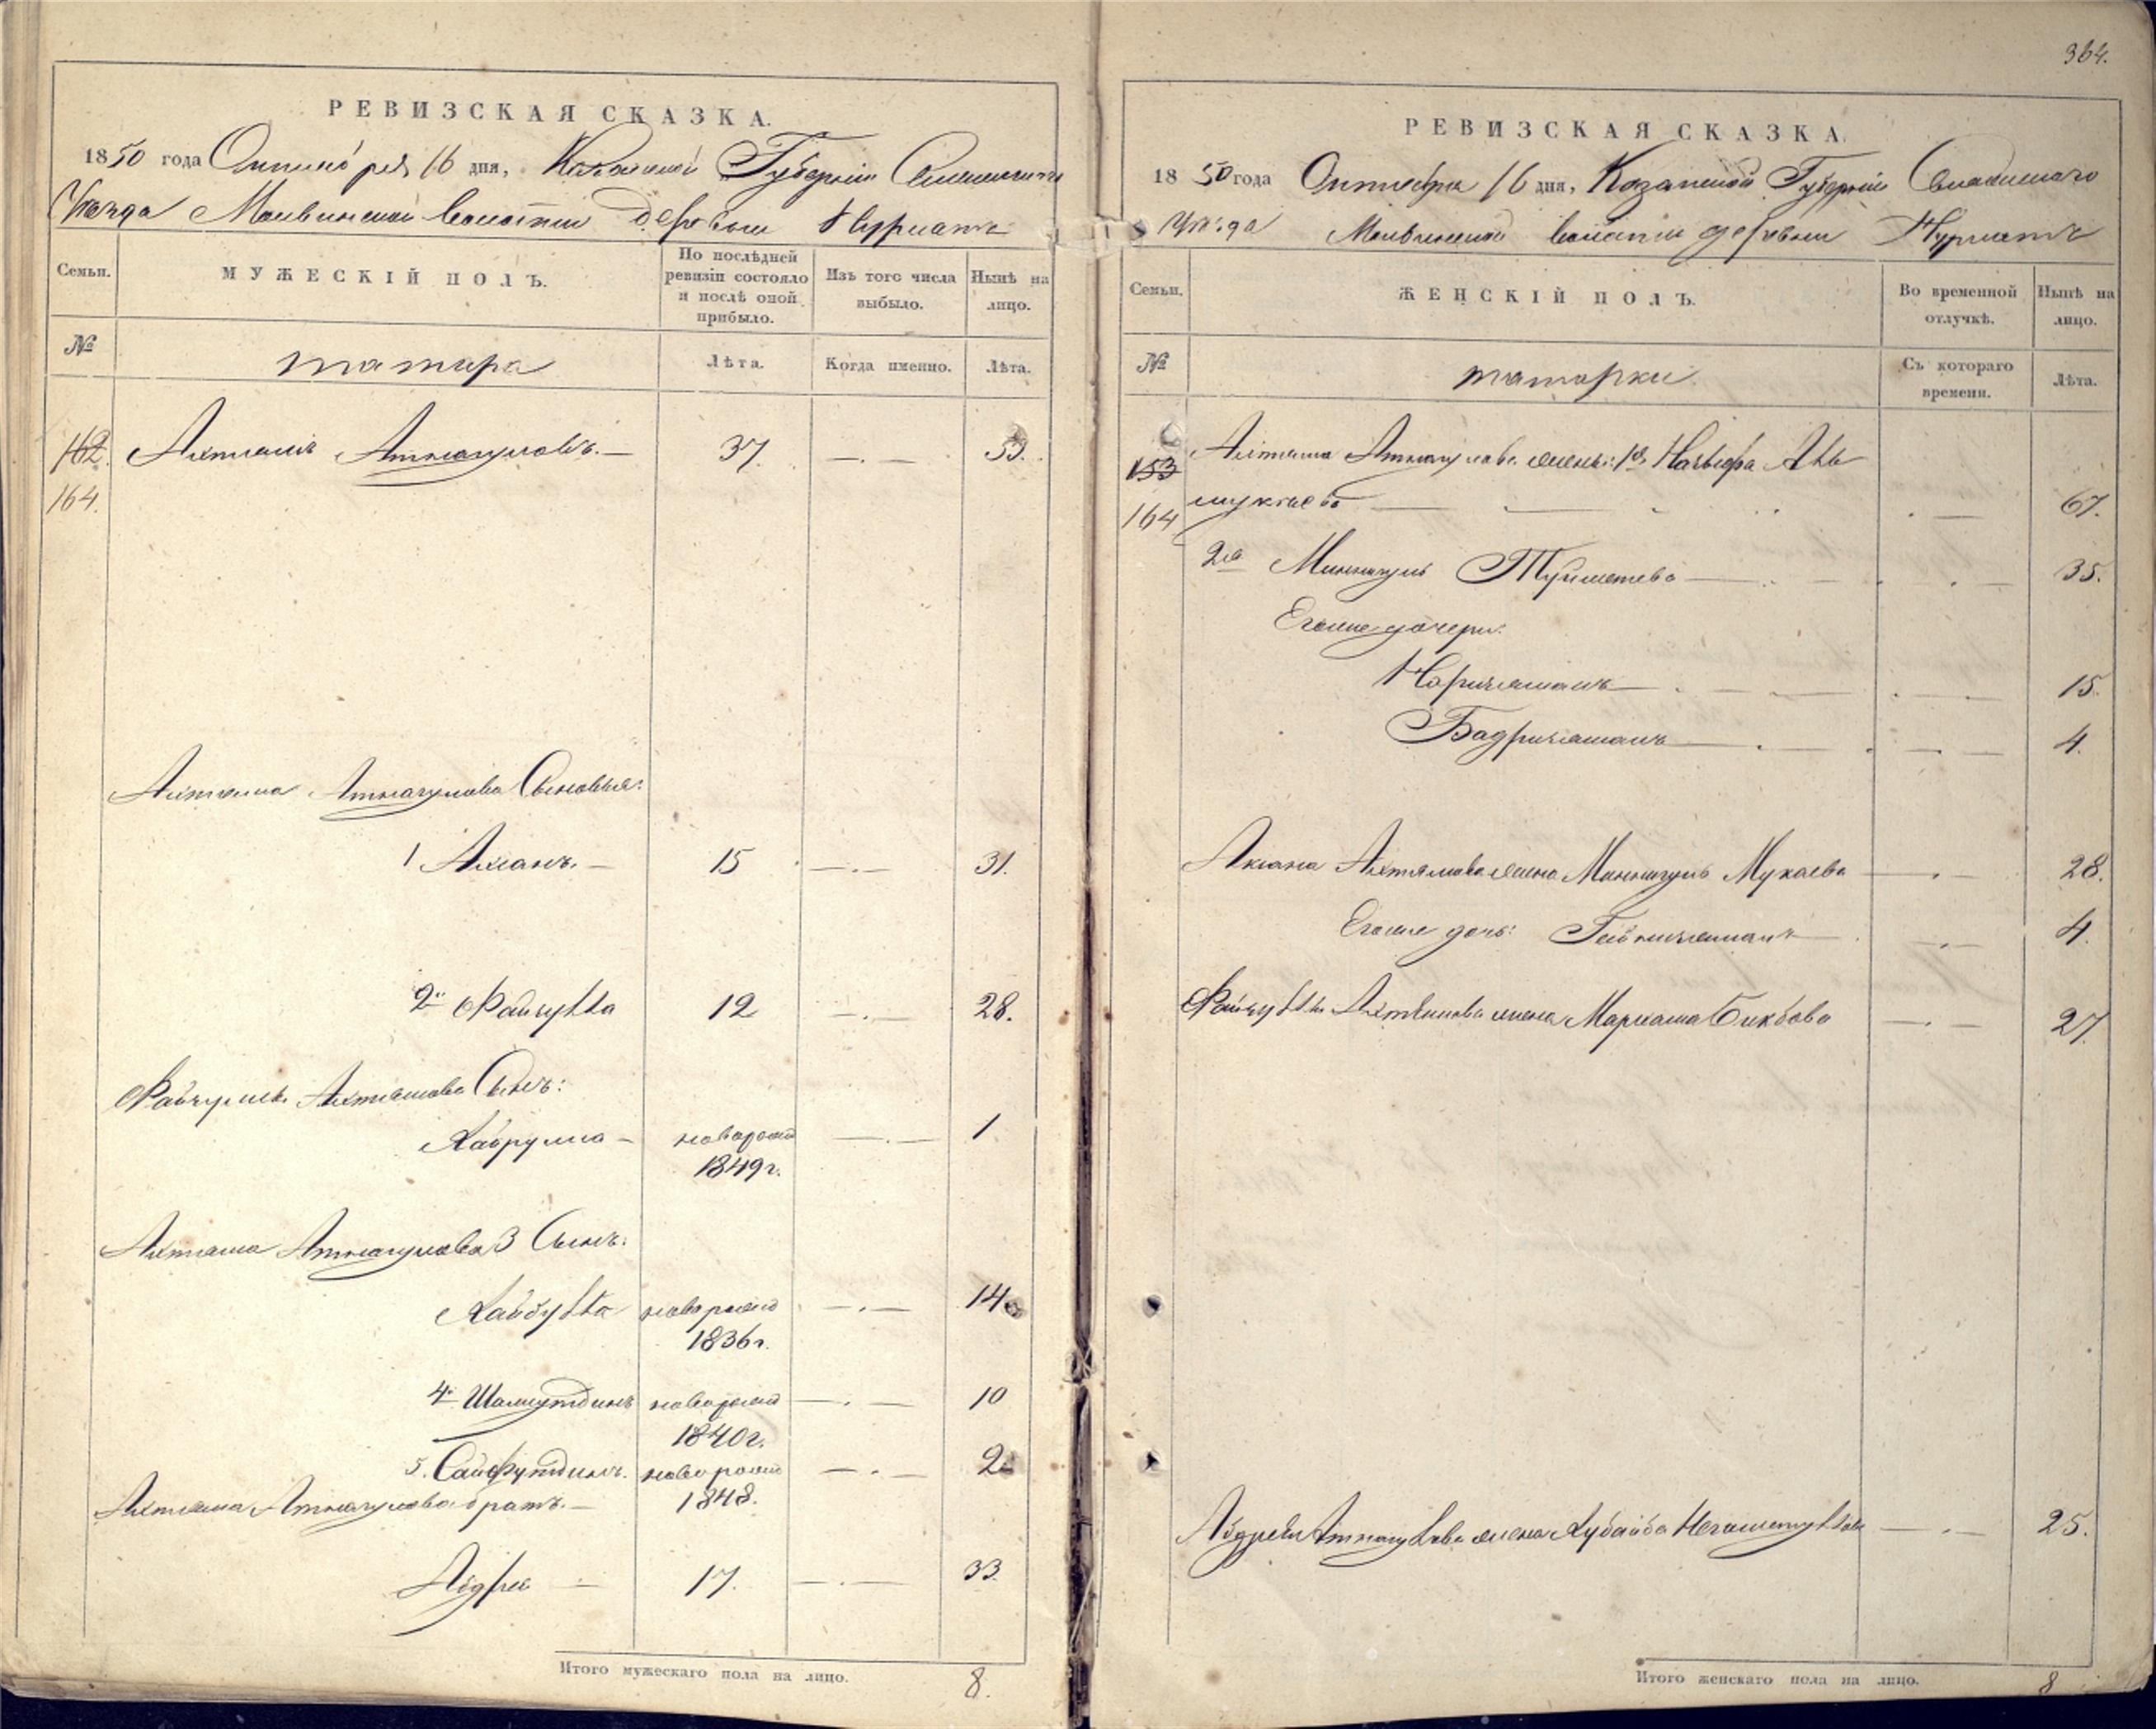 364.
РЕВИЗСКАЯ СКАЗКА.
1850 года Октября 16 дня, Казанской Губерніи Свіяжскаго
Уѣзда Молвинской волости деревни Нурлатъ
Семьи.
МУЖЕСКІЙ ПОЛЪ.
По послѣдней ревизіи состояло и послѣ оной прибыло.
Изъ того числа выбыло.
Нынѣ на лицо.
№
татара
Лѣта.
Когда именно.
Лѣта.
162 Ахтямъ Атнагуловъ. 37. 53.
164.
Ахтяма Атнагулова Сыновья:
1 Ахіанъ. 15 31.
2й Файзулла 12 28.
Файзуллы Ахтямова Сынъ:
Хайрулла новорожд 1
1849 г.
Ахтяма Атнагулова 3 Сынъ:
Хайбулла новорожд 14
1836 г.
4й Шамсутдинъ новорожд 10
1840 г.
5. Сайфутдинъ. новорожд 2
Ахтяма Атнагулова братъ. 1848.
Абдрей 17. 33.
Итого мужескаго пола на лицо. 8.
РЕВИЗСКАЯ СКАЗКА.
1850 года Октября 16 дня, Казанской Губерніи Свіяжскаго
Уѣзда Молвинской волости деревни Нурлатъ
Семьи.
ЖЕНСКІЙ ПОЛЪ.
Во временной отлучкѣ.
Нынѣ на лицо.
№
татарки
Съ котораго времени.
Лѣта.
153 Ахтяма Атнагулова жены: 1я
164 67.
2я Миннигуль 35.
Егоже дочери:
15.
Бадрижамалъ 4.
Ахіана Ахтямова жена Миннигуль Мукаева 28.
Егоже дочь: 4.
Файзуллы Ахтямова жена Марьяма Бикбова 27
Абдрея Атнагулова жена Хубайба 25.
Итого женскаго пола на лицо. 8